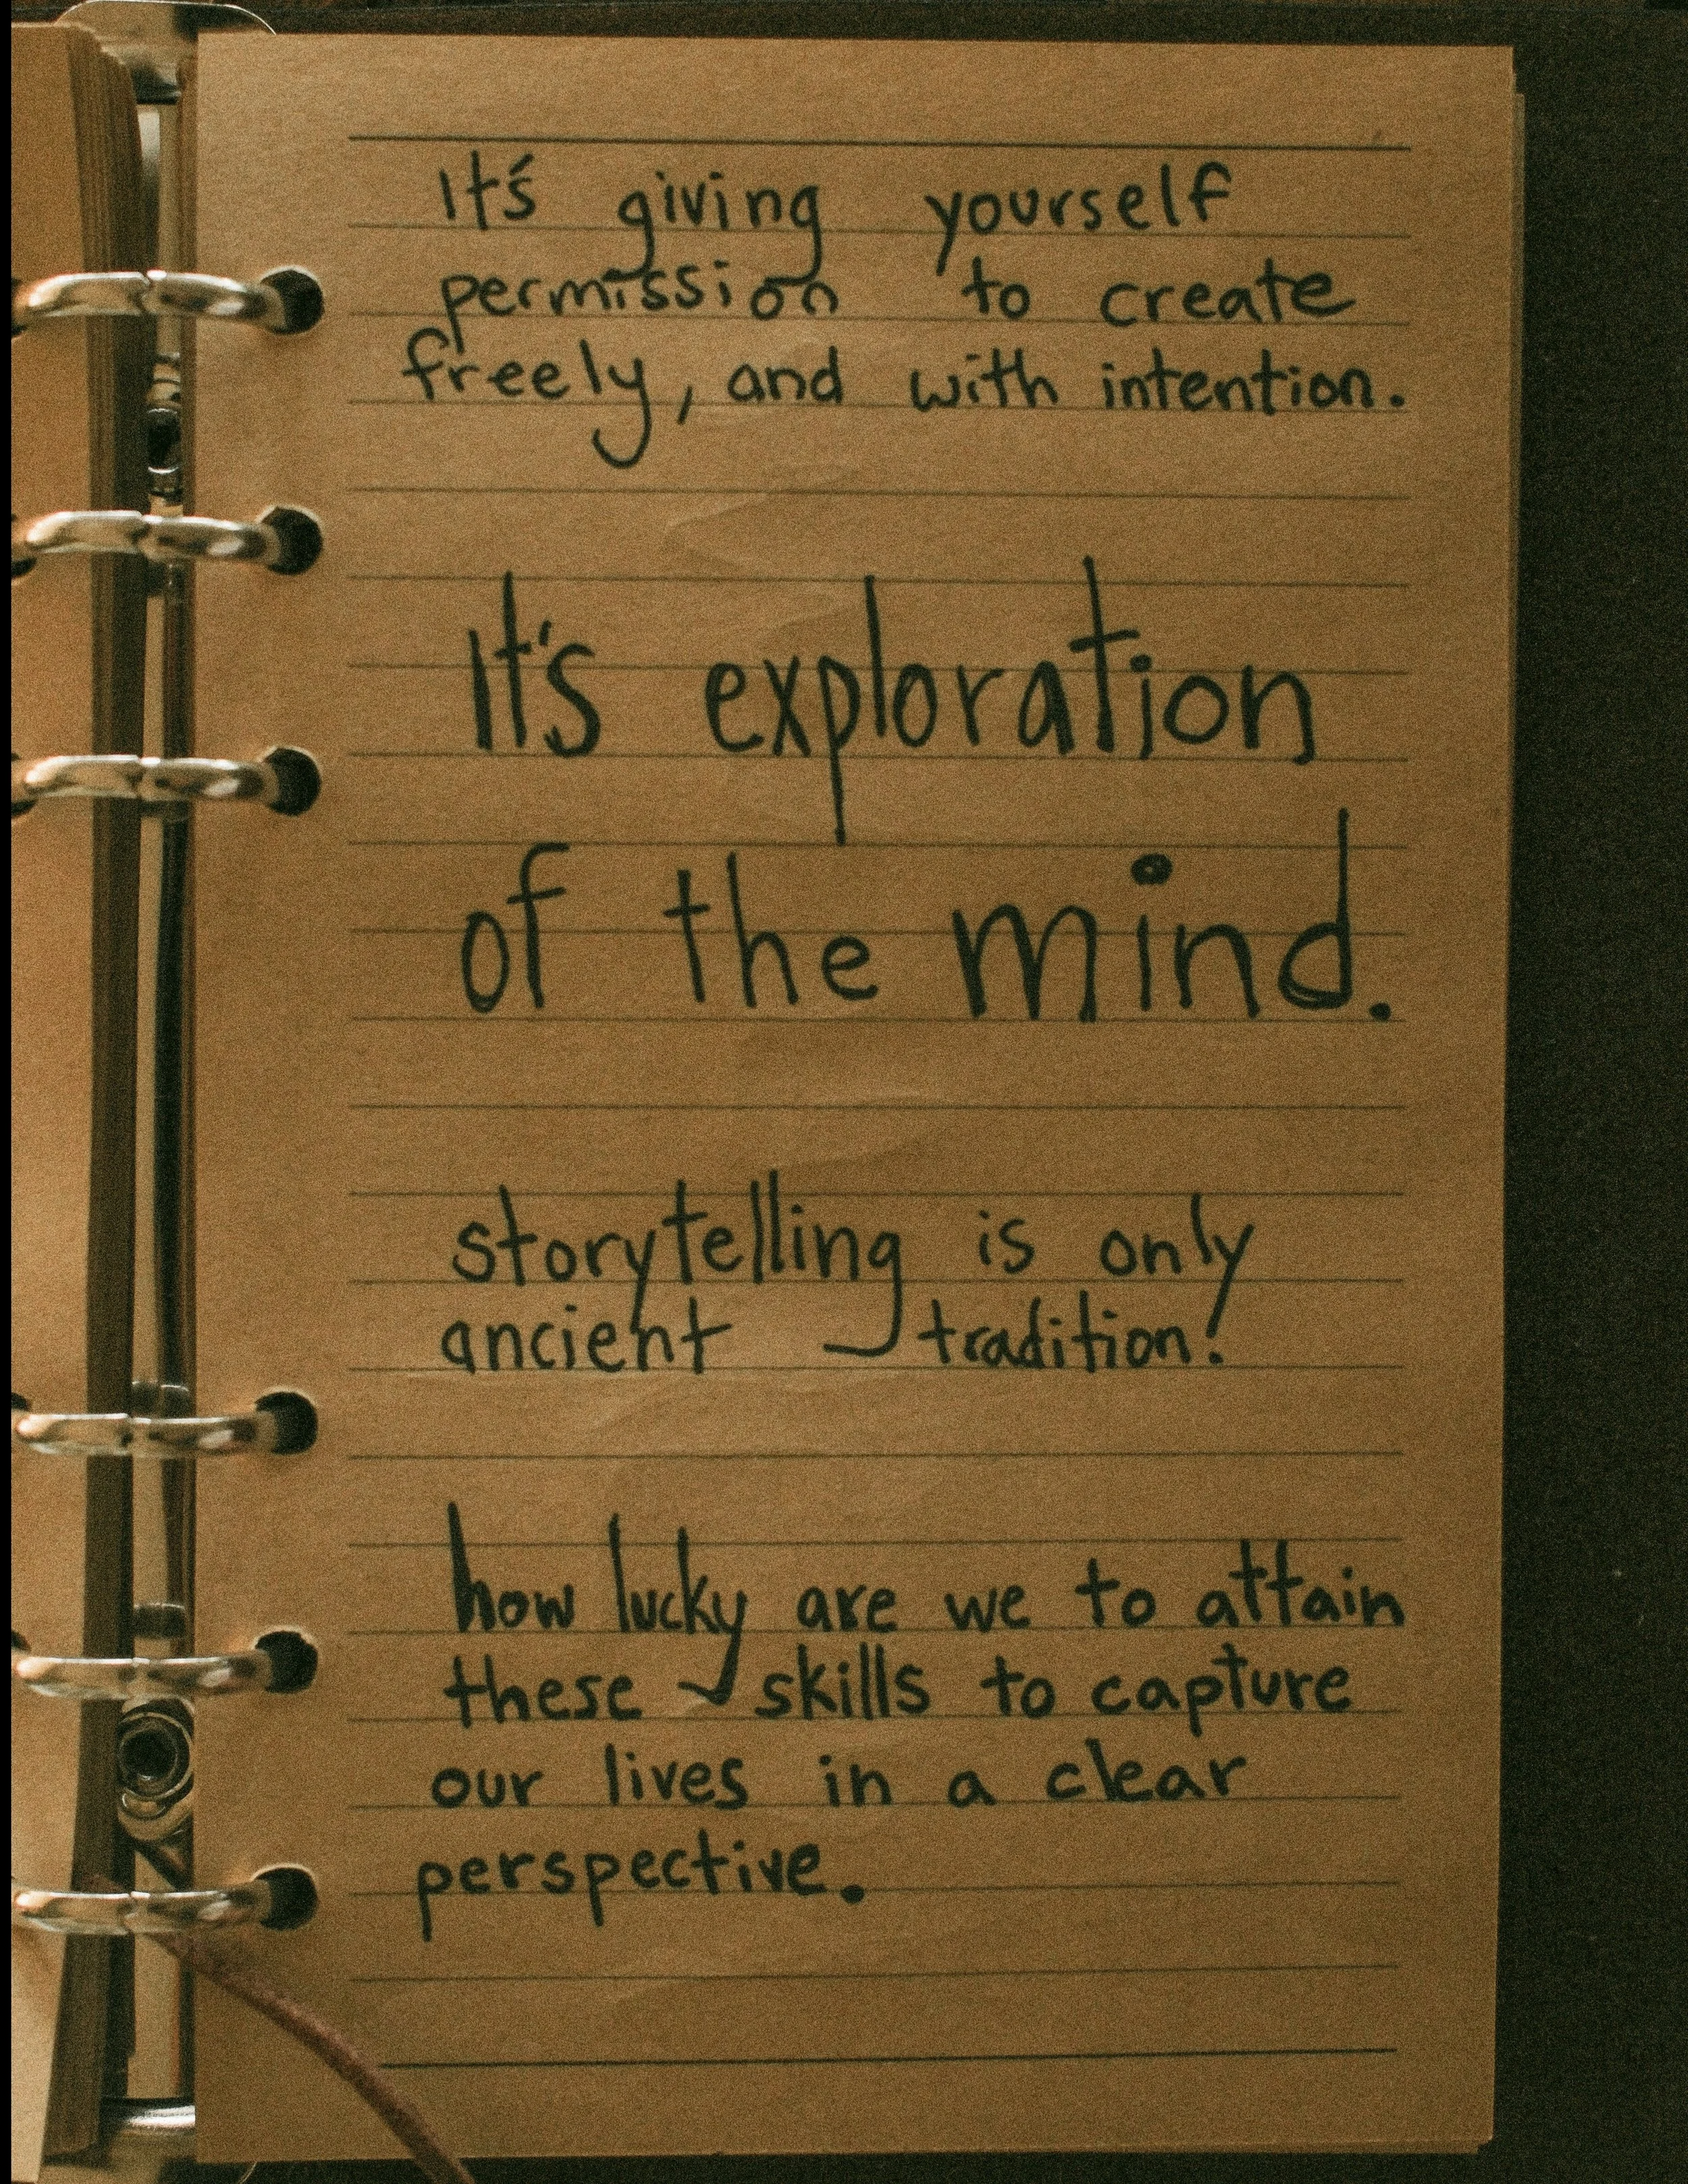 It's giving yourself
permission to create
freely, and with intention.
It's exploration
of the mind.
storytelling is only
ancient tradition!
how lucky are we to attain
these skills to capture
our lives in a clear
perspective.